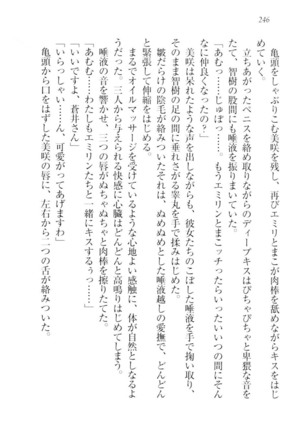 246
亀頭をしゃぶることに耽る美咲を残し、再びエミリとまこが肉棒を舐めながらキスをはじ
めていく。
立ちあがったペニスを絡め取りながらのディープキスはぴちゃぴちゃと卑猥な音を
立て、智樹の股間にも唾液を振りまいていた。
「あむっ……じゅぽっ……もうエミリンとまこッチったらいったいいつの間にそん
なに仲良くなったの？」
美咲は呆れたような声を出しながらも、彼女たちのこぼした唾液を手で掬い取り、
そのまま智樹の足の間に垂れさがる睾丸を手で揉みはじめた。
皺だらけの陰毛が絡みついたそれは、ぬめぬめとした唾液越しの愛撫で、どんどん
と緊張して伸縮をはじめる。
まるでオイルマッサージを受けているような心地よい感触に、体が自然となるよ
うだった。三人から与えられる快感に心臓はどんどんと高鳴りはじめてしまう。
唾液の音を響かせ、三つの唇がぬちゃぬちゃと肉棒を擦りたてた。
「あむむ……わたしもエミリンたちと一緒にキスするぅっ……」
「いいですよ、蒼井さん」
「いらっしゃい……ん、可愛がってあげますわ」
亀頭から口をはずした美咲の唇に、左右から二つの舌が絡みついた。